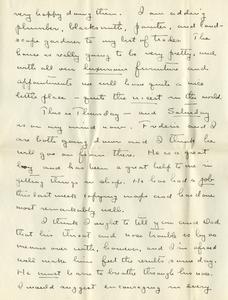 very happy doing them. I am adding
plumber, blacksmith, painter, and land-
scape gardener to my list of trades. The
house is really going to be very pretty, and
with all our luxurious furniture and
appointments we will have quite a nice
little place - quite the nicest in the world.
This is Thursday - and Saturday
is on my mind now. Frederic and I
are both going down and I think he
will go on from there. He is a great
boy and has been a great help to me in
getting things in shape. He has had a job
this last week copying maps and has done
most remarkably well.
I think I ought to tell you and Dad
that his throat and nose trouble is by no
means over with, however, and I'm afraid
will make him feel the results some day.
He must learn to breathe through his nose.
I would suggest encouraging in every